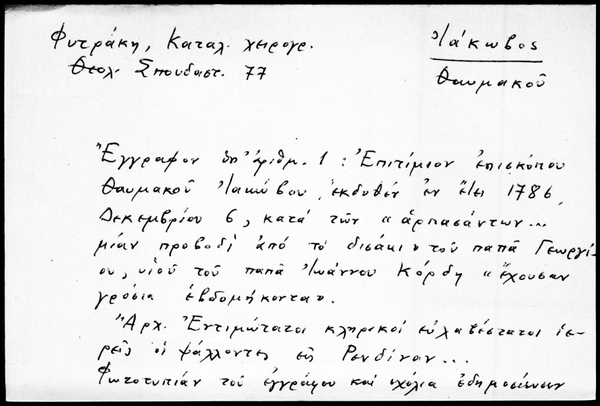 Φυτράκη, Καταλ. χειρογρ.
Θεολ. Σπουδαστ. 77
Ἰάκωβος
Θαυμακοῦ
Ἔγγραφον ὑπ' ἀριθμ. 1: Ἐπιτίμιον ἐπισκόπου
Θαυμακοῦ Ἰακώβου, ἐκδοθέν ἐν ἔτει 1786,
Δεκεμβρίου 6, κατά τῶν «ἁρπασάντων...
μίαν προβοδί ἀπό τό δισάκι» τοῦ παπᾶ Γεωργί-
ου, υἱοῦ τοῦ παπᾶ Ἰωάννου Κόρδη «ἔχουσαν
γρόσια ἑβδομήκοντα».
Ἀρχ. Ἐντιμώτατοι κληρικοί εὐλαβέστατοι ἱε-
ρεῖς οἱ ψάλλοντες εἰς Ρενδίναν...
Φωτοτυπίαν τοῦ ἐγγράφου καί σχόλια ἐδημοσίευσεν